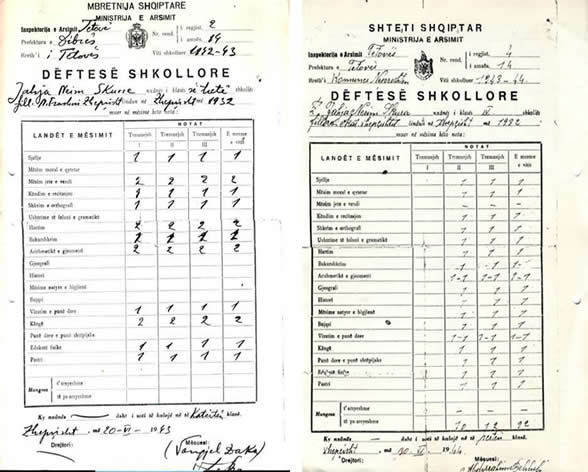 MBRETNIJA SHQIPTARE
MINISTRIJA E ARSIMIT
Inspektorija e Arsimit Tetovë
Prefektura e Dibrës
Rreth'i i Tetovës
Nr. rend. i regjist. 2
i amzës 89
Viti shkolluer 1942-43
DËFTESË SHKOLLORE
Jahja Neim Skurra nxënës i klasës së tretë shkollës
fill. N. Frashri Zhepisht lindun në Zhepisht më 1932
muer në mësime këto nota:
LANDËT E MËSIMIT
NOTAT
Tremuejsh I
Tremuejsh II
Tremuejsh III
E mesme e vitit
Sjellje 1 1 1 1
Mësim moral e qytetar
Mësim jete e vendi 2 2 2 2
Këndim e recitacjon 1 1 1 1
Shkrim e orthografi 1 1 1 1
Ushtrime të foluni e gramatikë
Hartim 2 2 2 2
Bukurshkrim 1 1 1 1
Arithmetikë e gjeometri 2 2 2 2
Gjeografi
Histori
Mësime natyre e higjenë
Bujqsi
Vizatim e punë dore 1 1 1 1
Kangë 2 2 2 2
Punë dore e punë shtëpijake
Edukatë fizike 1 1 1
Pastri 1 1 1 1
Mungesa t'arsyeshme
të pa arsyeshme
Ky nxënës asht i zoti të kalojë në të Katërtën klasë.
Zhepisht, më 20-VI-1943
Drejtori:
Mësuesi:
(Vangjel Daka)
SHTETI SHQIPTAR
MINISTRIJA E ARSIMIT
Inspektorija e Arsimit Tetovës
Prefektura e Tetovës
Rreth'i
Nr. rend. i regjist. 1
i amzës 14
Viti shkolluer 1943-44
DËFTESË SHKOLLORE
Jahja Neim Skurra nxënës i klasës IV shkollës
lindun në Zhepisht më 1932
muer në mësime këto nota:
LANDËT E MËSIMIT
NOTAT
Tremuejsh I
Tremuejsh II
Tremuejsh III
E mesme e vitit
Sjellje 1 1 1
Mësim moral e qytetar 1 1 1
Mësim jete e vendi - - -
Këndim e recitacjon 1 1 1
Shkrim e orthografi 1 1 1
Ushtrime të foluni e gramatikë 1 1 1
Hartim 1 1 1
Bukurshkrim 1 1- 1-
Arithmetikë e gjeometri 1-1 1-1 1-1
Gjeografi 1 1 1
Histori 1 1 1
Mësime natyre e higjenë 1 1 1
Bujqsi 1 1 1
Vizatim e punë dore 1-1 1-1 1-1
Kangë 1 1 1
Punë dore e punë shtëpijake 1 1 1
Edukatë fizike 1 1 1
Pastri 1 1 1
Mungesa t'arsyeshme
të pa arsyeshme
Ky nxënës asht i zoti të kalojë në të pestën klasë.
Zhepisht, më 20-VI-1944
Drejtori:
Mësuesi: